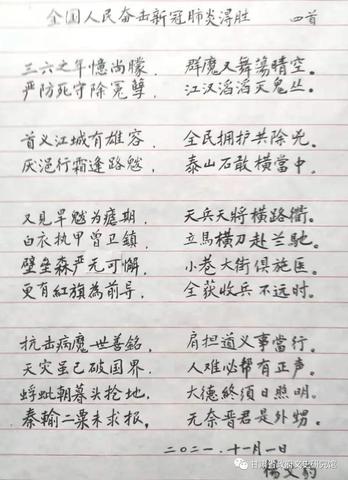 全国人民奋击新冠肺炎得胜 四首
三六之年憶尚朦， 群魔又舞蕩晴空。
严防死守除冤孽， 江汉滔滔灭鬼丛。
首义江城有雄容， 全民拥护共除凶。
厌浥行霜逢路魃， 泰山石敢横當中。
又見旱魃为瘧期， 天兵天將横路衢。
白衣执甲曾卫鎮， 立馬横刀赴兰馳。
壁垒森严无可懈， 小巷大街俱施医。
更有紅旗為前导， 全获收兵不远时。
抗击病魔世善铭， 肩担道义事當行。
天灾虽已破国界， 人难必帮有正声。
蜉蚍朝暮头抢地， 大德终须日照明。
秦輸二粟未求报， 无奈晋君是外甥。
二〇二一.十一月一日
楊文
甘肃省政府文史研究馆